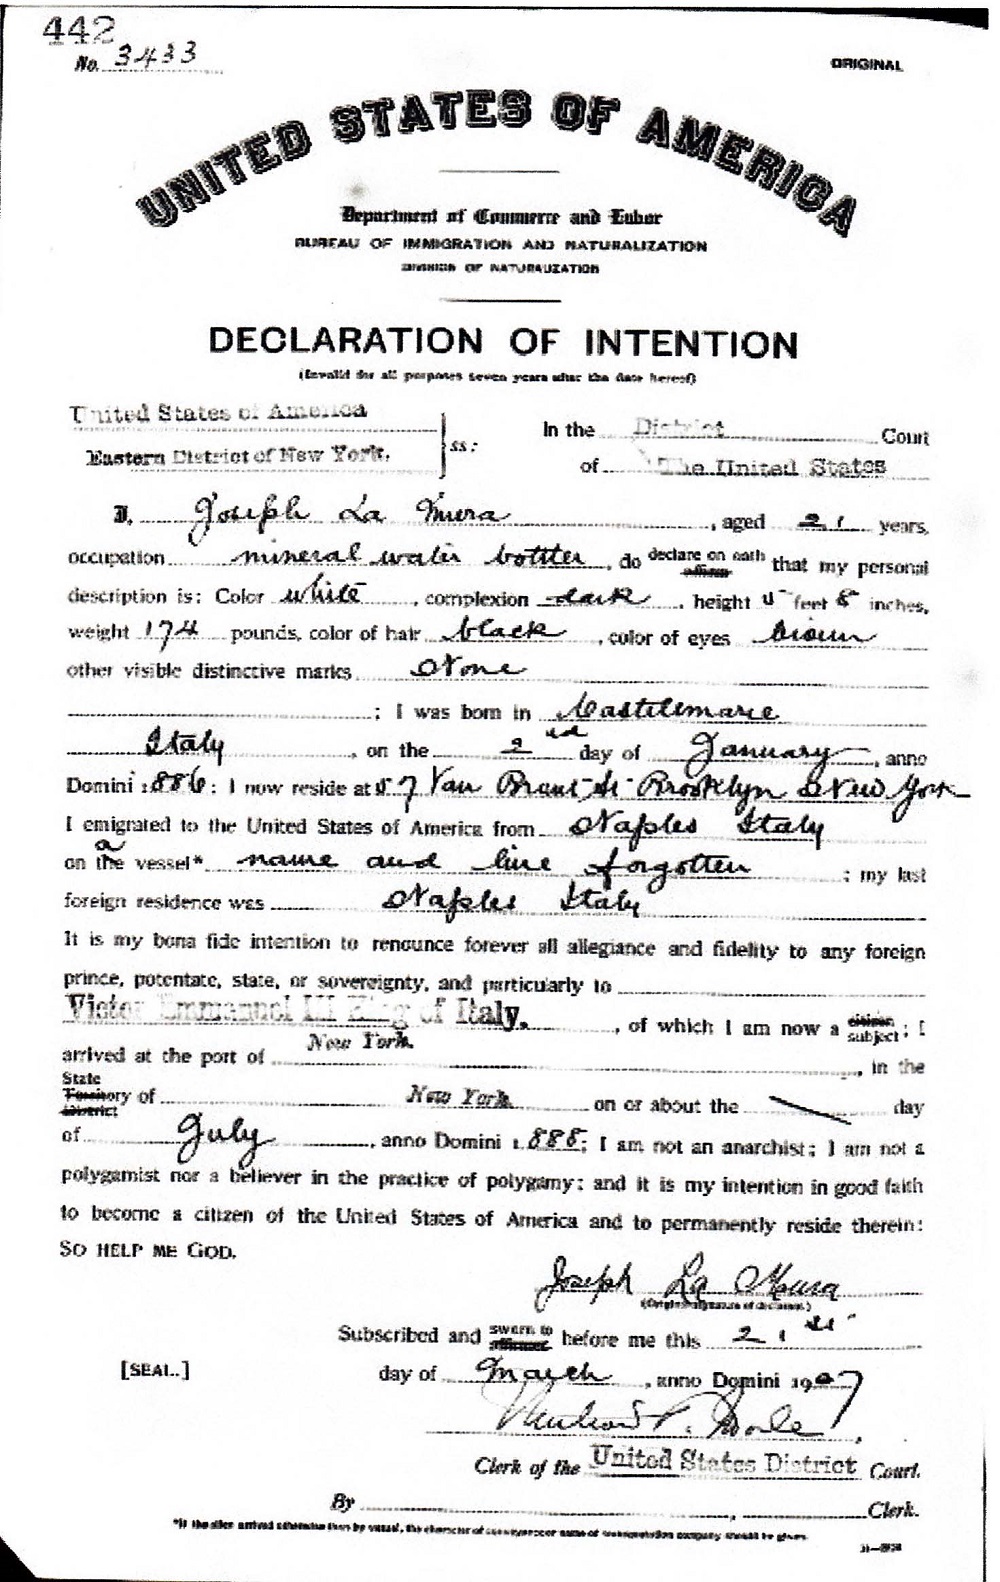 442
No. 3433
ORIGINAL
UNITED STATES OF AMERICA
Department of Commerce and Labor
BUREAU OF IMMIGRATION AND NATURALIZATION
DIVISION OF NATURALIZATION
DECLARATION OF INTENTION
(Invalid for all purposes seven years after the date hereof)
United States of America
Eastern District of New York.
ss:
In the District Court
of The United States
I, Joseph La Mura, aged 21 years,
occupation mineral water bottler, do declare on oath affirm that my personal
description is: Color white, complexion dark, height feet 8 inches,
weight 174 pounds, color of hair black, color of eyes brown
other visible distinctive marks None
; I was born in Castelemare
Italy, on the 2nd day of January, anno
Domini 1886; I now reside at 57 Van Brunt St Brooklyn New York
I emigrated to the United States of America from Naples Italy
a
on the vessel* name and line forgotten; my last
foreign residence was Naples Italy
It is my bona fide intention to renounce forever all allegiance and fidelity to any foreign
prince, potentate, state, or sovereignty, and particularly to
Victor Emmanuel III King of Italy, of which I am now a citizen subject; I
arrived at the port of New York, in the
State Territory District of New York on or about the day
of July, anno Domini 1888; I am not an anarchist; I am not a
polygamist nor a believer in the practice of polygamy; and it is my intention in good faith
to become a citizen of the United States of America and to permanently reside therein:
SO HELP ME GOD.
Joseph La Mura
(Original signature of declarant.)
Subscribed and sworn to affirmed before me this 21st
[SEAL.]
day of March, anno Domini 1907
Clerk of the United States District Court.
By , Clerk.
*If the alien arrived otherwise than by vessel, the character of conveyance or name of transportation company should be given.